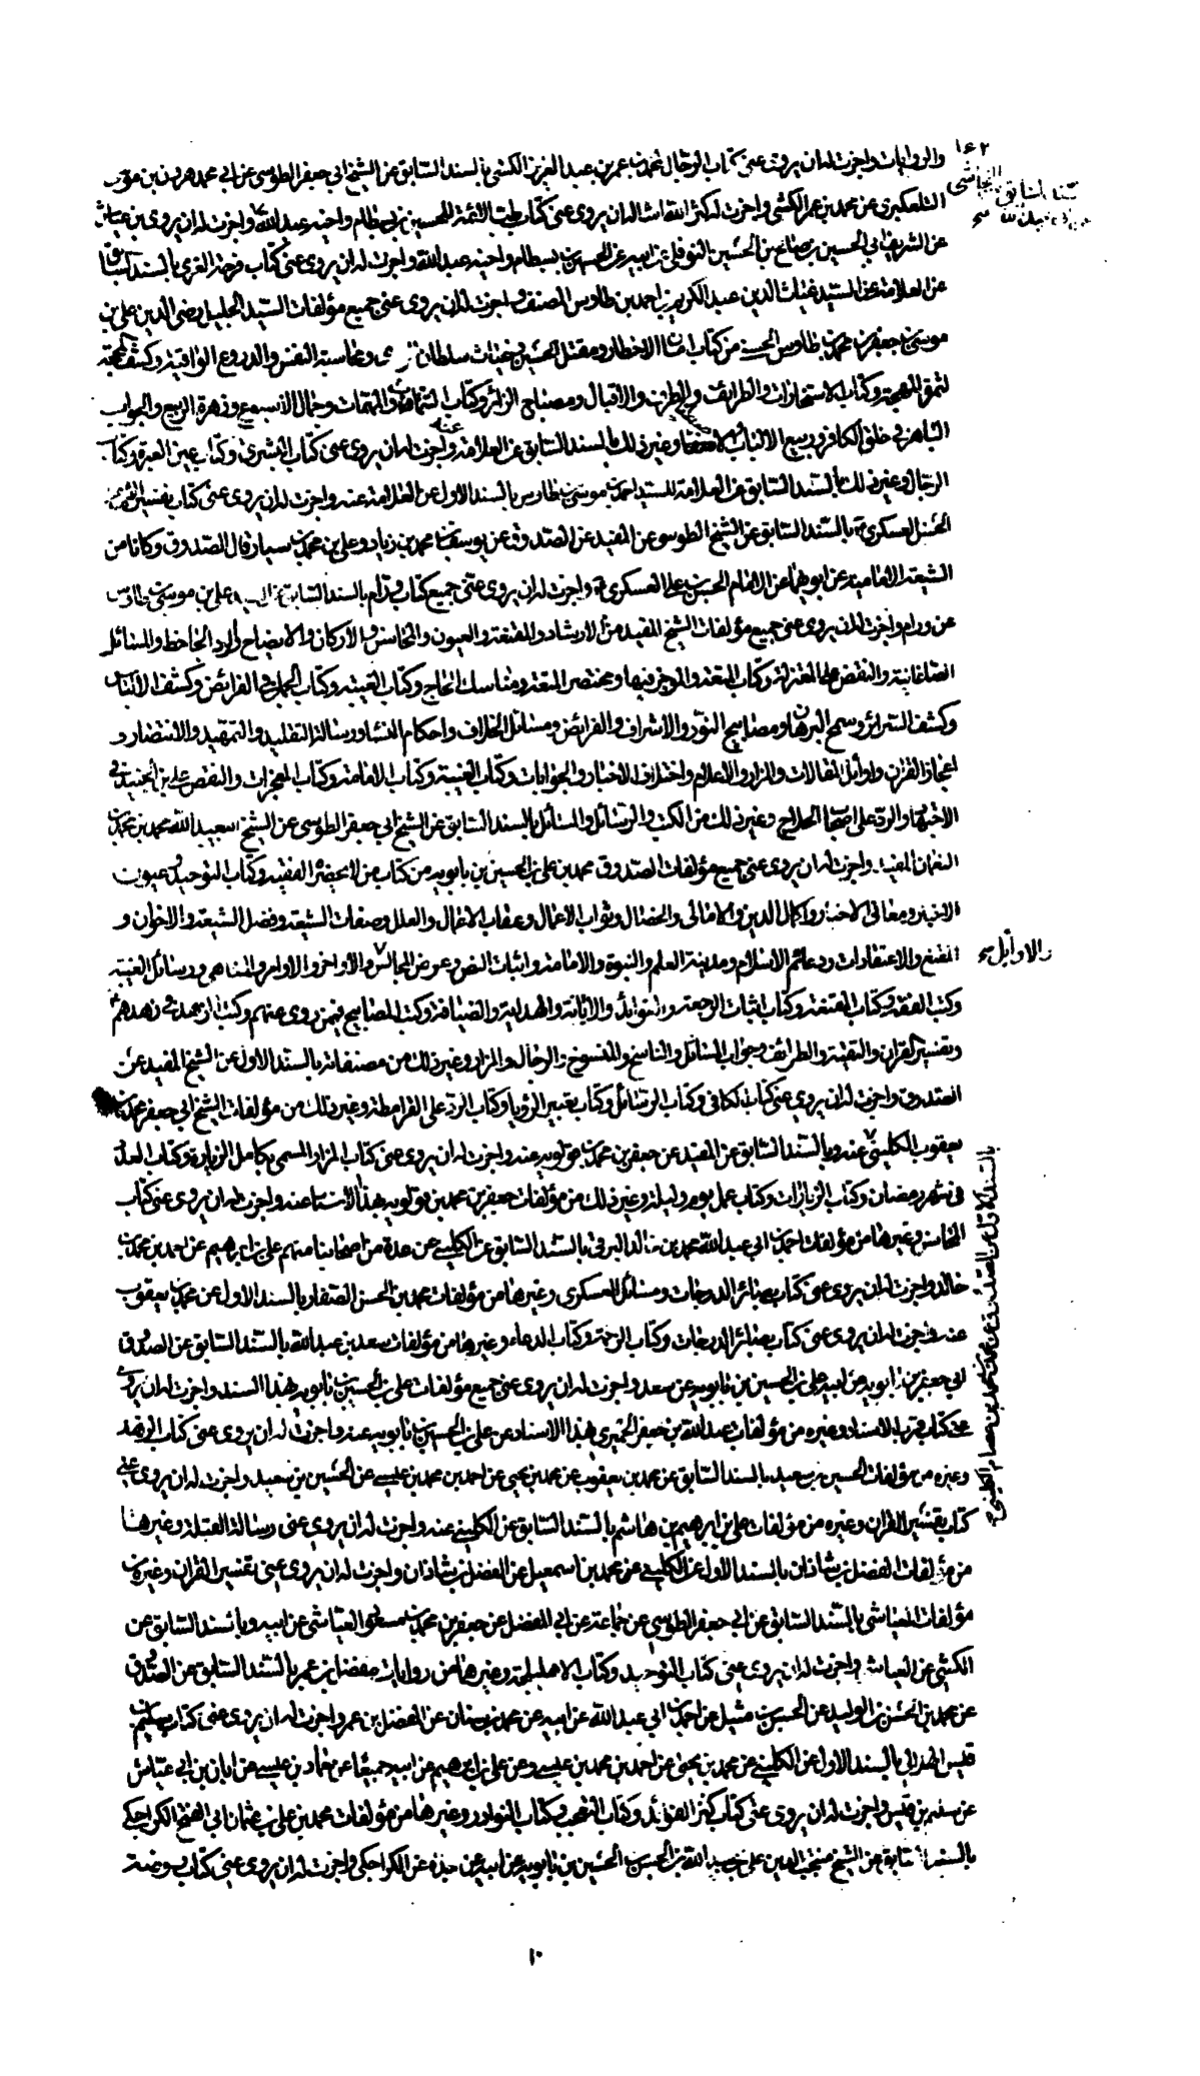 ١٤٢
والروايات واجزت له ان يروى عنى كتاب الرجال لمحمد بن عمر بن عبد العزيز الكشى بالسند السابق عن الشيخ ابى جعفر الطوسى عن ابى محمد هرون بن موسى
التلعكبرى عن محمد بن عمر الكشى واجزت له اكثر الله امثاله ان يروى عنى كتاب طب الائمة للحسين بن بسطام واخيه عبد الله واجزت له ان يروى
عن الشريف ابى الحسين بن صالح بن الحسين النوفلى عن ابيه عن الحسين بن بسطام واخيه عبد الله واجزت له ان يروى عنى كتاب فرحة الغرى بالسند السابق
عن العلامة عن السيد غياث الدين عبد الكريم بن احمد بن طاوس المصنف واجزت له ان يروى عنى جميع مؤلفات السيد الجليل رضى الدين على بن
موسى بن جعفر بن محمد بن طاوس الحسينى من كتاب امان الاخطار ومقتل الحسين وغياث سلطان ومحاسبة النفس والدروع الواقية وكشف المحجة
لثمرة المهجة وكتاب الاستخارات والطرائف والطرف والاقبال ومصباح الزائر وكتاب التمامات والمهمات وجمال الاسبوع وزهرة الربيع والجواب
الباهر فى خلق الكافر وربيع الالباب وغير ذلك بالسند السابق عن العلامة عنه واجزت له ان يروى عنى كتاب البشرى وكتاب عين العبرة وكتاب
الرجال وغير ذلك بالسند السابق عن العلامة للسيد احمد بن موسى بن طاوس بالسند الاول عن العلامة عنه واجزت له ان يروى عنى كتاب تفسير
الحسن العسكرى بالسند السابق عن الشيخ الطوسى عن المفيد عن الصدوق عن يوسف بن محمد بن زياد وعلى بن محمد بن سيار قال الصدوق وكانا من
الشيعة الامامية عن ابويهما عن الامام الحسن بن على العسكرى واجزت له ان يروى عنى جميع كتاب ورام بالسند السابق عن السيد على بن موسى بن طاوس
عن ورام واجزت له ان يروى عنى جميع مؤلفات الشيخ المفيد من الارشاد والمقنعة والعيون والمحاسن والاركان والايضاح والرد على الجاحظ والمسائل
الصاغانية والنقض على المعتزلة وكتاب المتعة والموجز فيها ومختصر المتعة ومناسك الحاج وكتاب الغيبة وكتاب الجمل والفرائض وكشف الالتباس
وكشف السرائر ومصابيح النور والاشراف والفرائض ومسائل الخلاف واحكام النساء ورسالة التقليد والتمهيد والانتصار و
اعجاز القران واوائل المقالات والمزار والاعلام واختلاف الاخبار والجوابات وكتاب الغيبة وكتاب الامامة وكتاب المعجزات والنقض على بن الجنيد فى
الاجتهاد والرد على اصحاب الحلاج وغير ذلك من الكتب والرسائل والمسائل بالسند السابق عن الشيخ ابى جعفر الطوسى عن الشيخ السعيد ابى عبد الله محمد بن محمد بن
النعمان المفيد واجزت له ان يروى عنى جميع مؤلفات الصدوق محمد بن على بن الحسين بن بابويه من كتاب من لا يحضره الفقيه وكتاب التوحيد وعيون
الاخبار ومعانى الاخبار واكمال الدين والامالى والخصال وثواب الاعمال وعقاب الاعمال والعلل وصفات الشيعة وفضل الشيعة والاخوان و
المقنع والاعتقادات ودعائم الاسلام ومدينة العلم والنبوة والامامة واثبات النص وعرض المجالس والاواخر والاوامر والمناهى ورسائل الغيبة
والاوائل
وكتب الفقه وكتاب المتعة وكتاب اثبات الرجعة والفوائد والابانة والهداية والضيافة وكتب المصابيح فيمن روى عنهم وكتب الزهد فى زهدهم
وتفسير القران والتقية والطرائف وجواب المسائل والناسخ والمنسوخ والرجال والمزار وغير ذلك من مصنفاته بالسند الاول عن الشيخ المفيد عن
الصدوق واجزت له ان يروى عنى كتاب الكافى وكتاب الرسائل وكتاب تعبير الرؤيا وكتاب الرد على القرامطة وغير ذلك من مؤلفات الشيخ ابى جعفر محمد بن
يعقوب الكلينى عنه وبالسند السابق عن المفيد عن جعفر بن محمد بن قولويه عنه واجزت له ان يروى عنى كتاب المزار المسمى بكامل الزيارة وكتاب العدد
فى شهر رمضان وكتاب الزيارات وكتاب عمل يوم وليلة وغير ذلك من مؤلفات جعفر بن محمد بن قولويه بهذا الاسناد عنه واجزت له ان يروى عنى كتاب
المحاسن وغيرها من مؤلفات احمد بن ابى عبد الله محمد بن خالد البرقى بالسند السابق عن الكلينى عن عدة من اصحابنا منهم على بن ابراهيم عن احمد بن محمد بن
خالد واجزت له ان يروى عنى كتاب بصائر الدرجات ومسائل العسكرى وغيرها من مؤلفات محمد بن الحسن الصفار بالسند الاول عن محمد بن يعقوب
عنه واجزت له ان يروى عنى كتاب بصائر الدرجات وكتاب الرحمة وكتاب الدعاء وغيرها من مؤلفات سعد بن عبد الله بالسند السابق عن الصدوق
ابى جعفر بن بابويه عن ابيه على بن الحسين بن بابويه عن سعد واجزت له ان يروى عنى جميع مؤلفات على بن الحسين بن بابويه بهذا السند واجزت له ان يروى
عنى كتاب قرب الاسناد وغيره من مؤلفات عبد الله بن جعفر الحميرى بهذا الاسناد عن على بن الحسين بن بابويه عنه واجزت له ان يروى عنى كتاب الزهد
وغيره من مؤلفات الحسين بن سعيد بالسند السابق عن محمد بن يعقوب عن محمد بن يحيى عن احمد بن محمد بن عيسى عن الحسين بن سعيد واجزت له ان يروى عنى
كتاب تفسير القران وغيره من مؤلفات على بن ابراهيم بن هاشم بالسند السابق عن الكلينى عنه واجزت له ان يروى عنى رسالة القبلة وغيرها
من مؤلفات الفضل بن شاذان بالسند الاول عن الكلينى عن محمد بن اسمعيل عن الفضل بن شاذان واجزت له ان يروى عنى تفسير القران وغيره من
مؤلفات العياشى بالسند السابق عن ابى جعفر الطوسى عن جماعة عن ابى المفضل عن جعفر بن محمد بن مسعود العياشى عن ابيه وبالسند السابق عن
الكشى عن العياشى واجزت له ان يروى عنى كتاب التوحيد وكتاب الاهليلجة وغيرها من روايات مفضل بن عمر بالسند السابق عن الصدوق
عن محمد بن الحسن بن الوليد عن الحسين بن متيل عن احمد بن ابى عبد الله عن ابيه عن محمد بن سنان عن المفضل بن عمر واجزت له ان يروى عنى كتاب سليم بن
قيس الهلالى بالسند الاول عن الكلينى عن محمد بن يحيى عن احمد بن محمد بن عيسى وعن على بن ابراهيم عن ابيه جميعا عن حماد بن عيسى عن ابان بن ابى عياش
عن سليم بن قيس واجزت له ان يروى عنى كتاب كنز الفوائد وكتاب التعجب وكتاب النوادر وغيرها من مؤلفات محمد بن على بن عثمان ابى الفتح الكراجكى
بالسند السابق عن الشيخ منتجب الدين على بن عبيد الله بن الحسن بن الحسين بن بابويه عن ابيه عن جده عن الكراجكى واجزت له ان يروى عنى كتاب روضة
بالسند الاول عن الصدوق عن محمد بن محمد بن عصام الكلينى
١٠